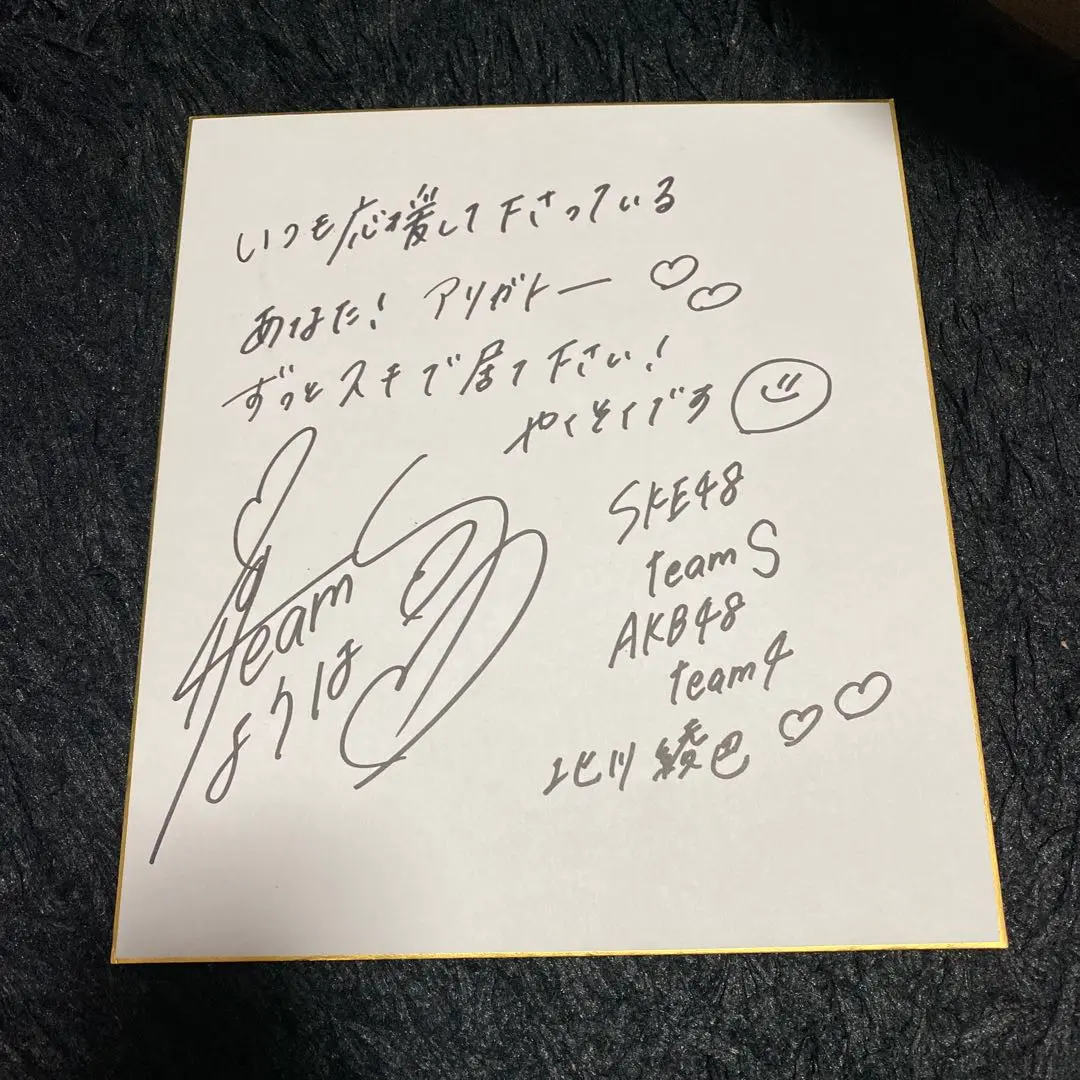 いつも応援して下さっている
あなた！ アリガトー ♡♡
ずっとスキで居て下さい！
やくそくです
SKE48
team S
AKB48
team4
北川 綾巴 ♡♡
team
りょうは